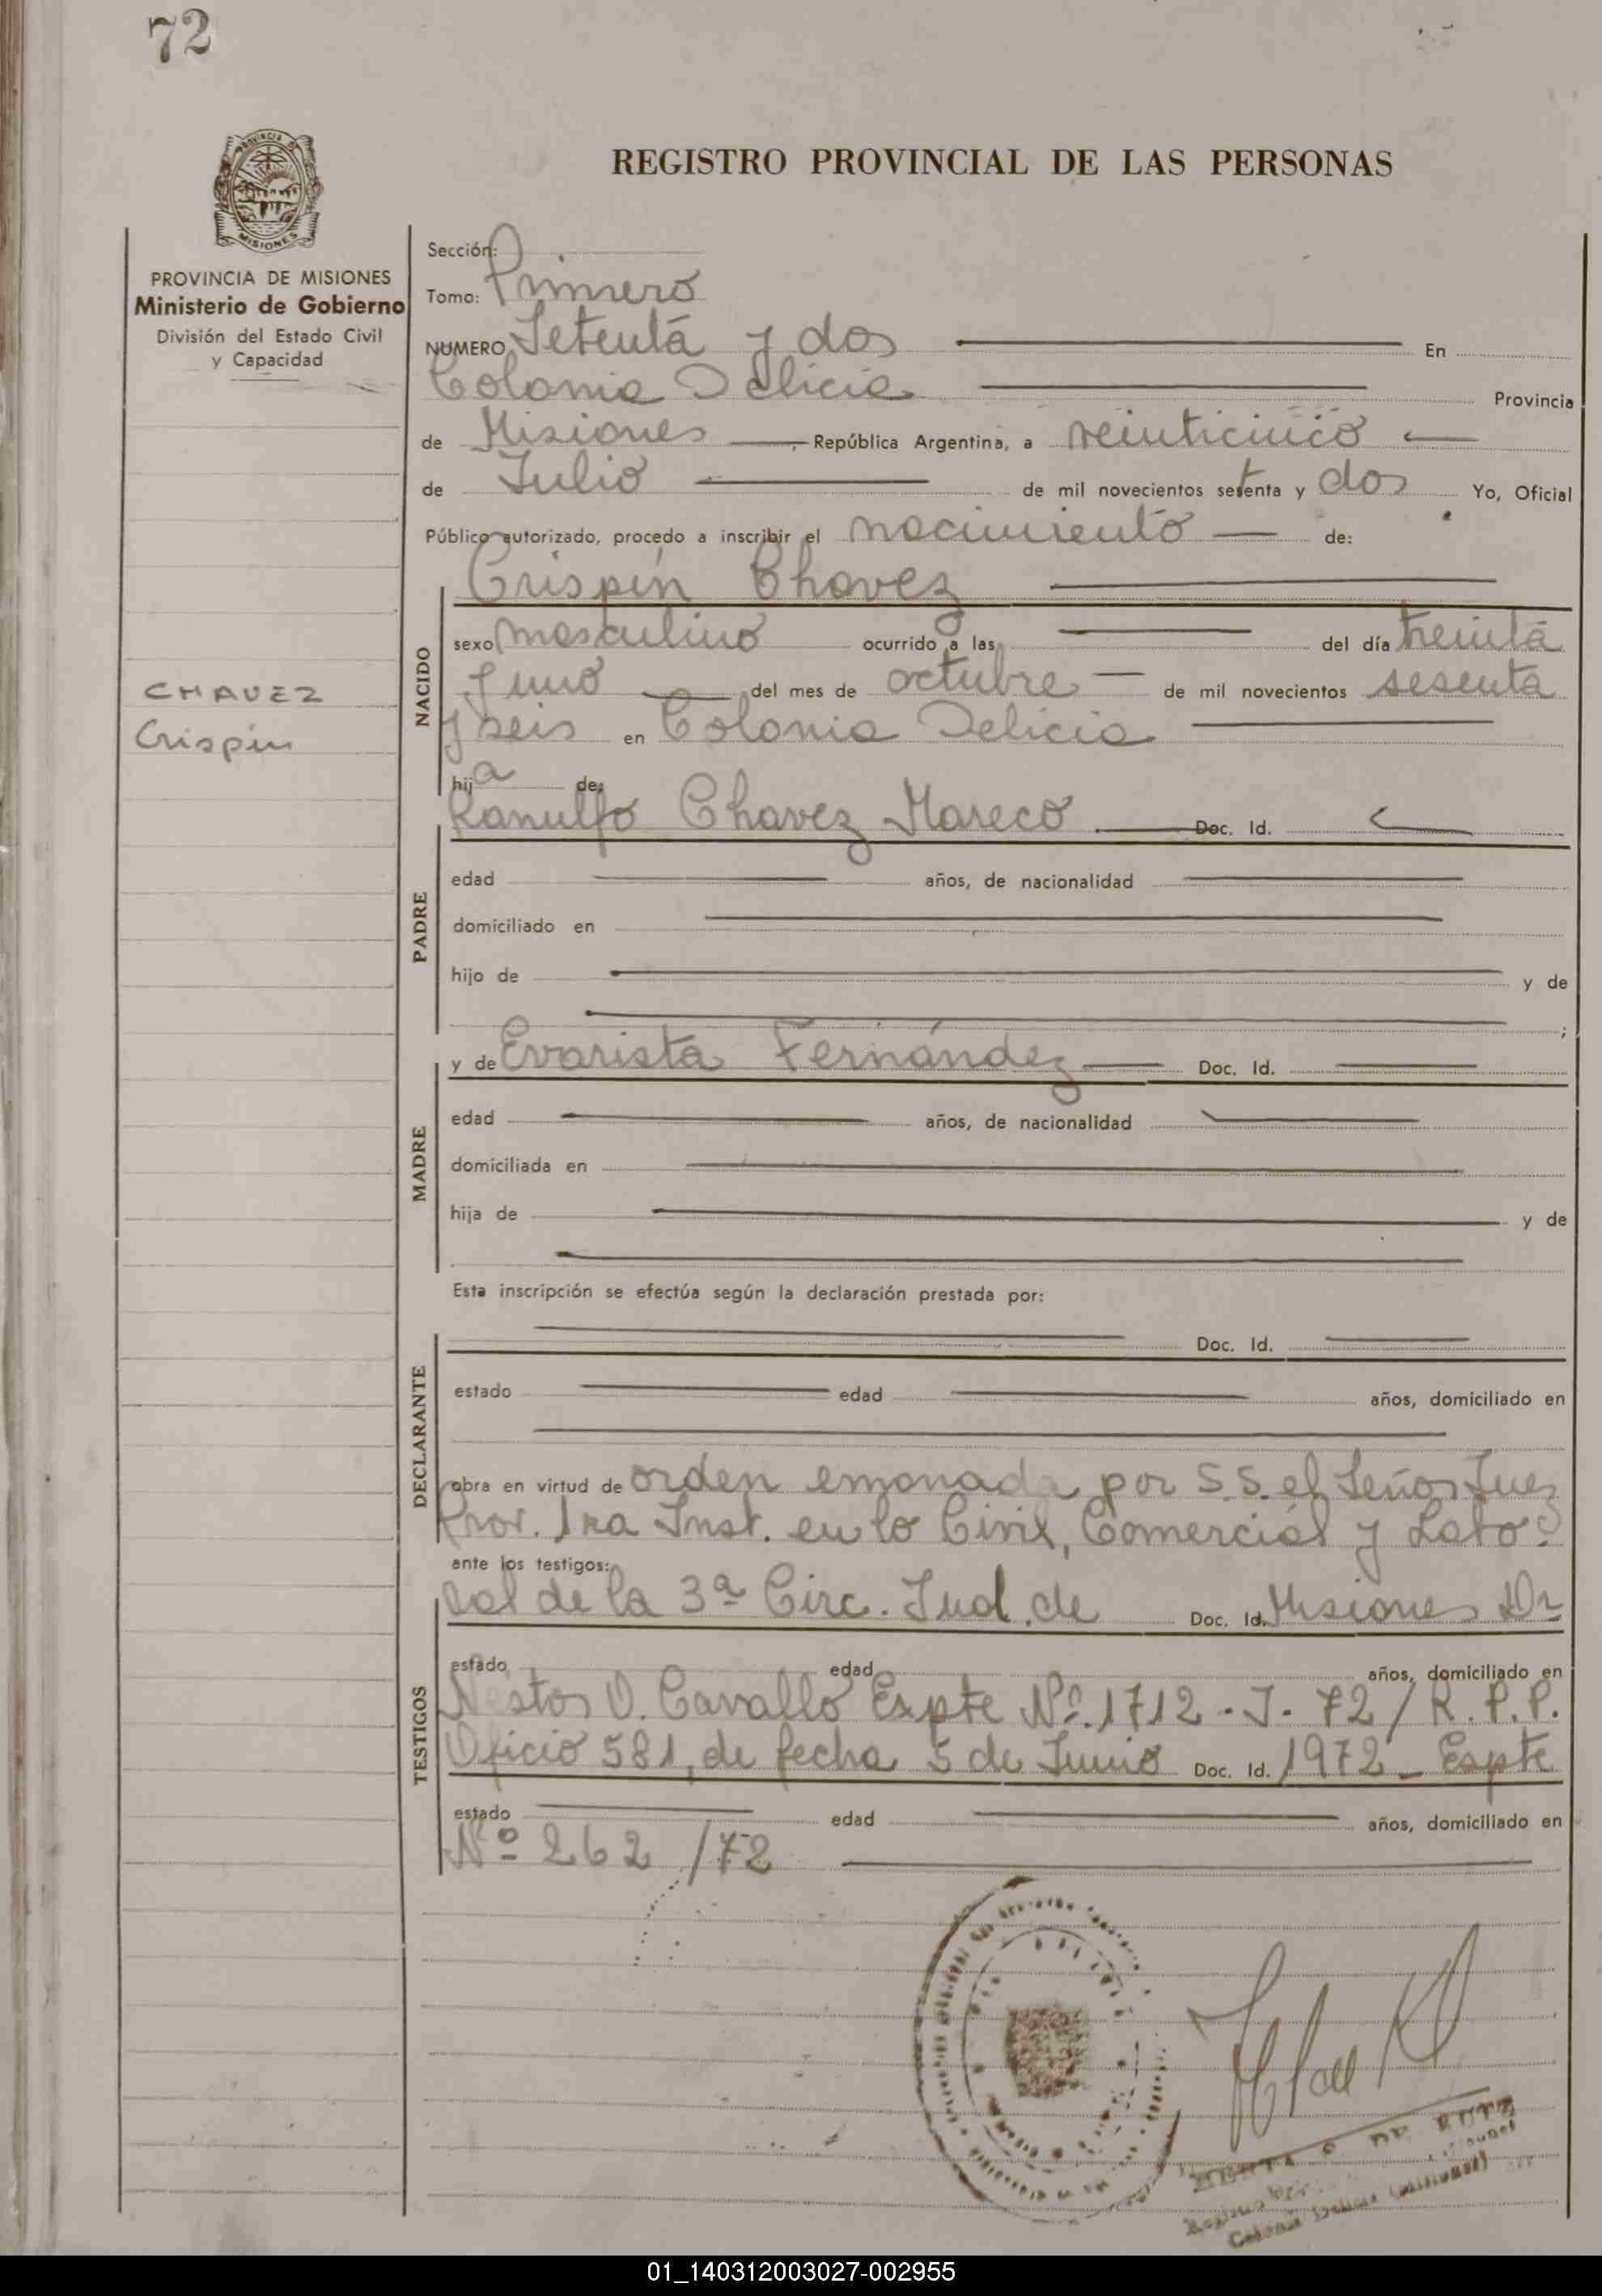 72
PROVINCIA DE
MISIONES
REGISTRO PROVINCIAL DE LAS PERSONAS
PROVINCIA DE MISIONES
Ministerio de Gobierno
División del Estado Civil
y Capacidad
Sección:
Tomo: Primero
NUMERO Setenta y dos En
Colonia Delicia Provincia
de Misiones, República Argentina, a veinticinco
de Julio de mil novecientos setenta y dos Yo, Oficial
Público autorizado, procedo a inscribir el nacimiento de:
Crispín Chavez
NACIDO
sexo masculino ocurrido a las del día treinta
y uno del mes de octubre de mil novecientos sesenta
y seis en Colonia Delicia
CHAVEZ
Crispín
hija de:
Ranulfo Chavez Mareco Doc. Id.
PADRE
edad años, de nacionalidad
domiciliado en
hijo de y de
;
y de Evarista Fernández Doc. Id.
MADRE
edad años, de nacionalidad
domiciliada en
hija de y de
Esta inscripción se efectúa según la declaración prestada por:
Doc. Id.
DECLARANTE
estado edad años, domiciliado en
obra en virtud de orden emanada por S.S. el Señor Juez
Prov. 1ra Inst. en lo Civil, Comercial y Labo
ante los testigos:
ral de la 3ª Circ. Jud. de Doc. Id. Misiones Dr
TESTIGOS
estado edad años, domiciliado en
Nestor O. Cavallo Expte Nº. 1712 - J - 72 / R.P.P.
Oficio 581, de fecha 5 de Junio Doc. Id. 1972 - Expte
estado edad años, domiciliado en
Nº 262 / 72
DE RUIZ
Colonia Delicia (Misiones)
01_140312003027-002955